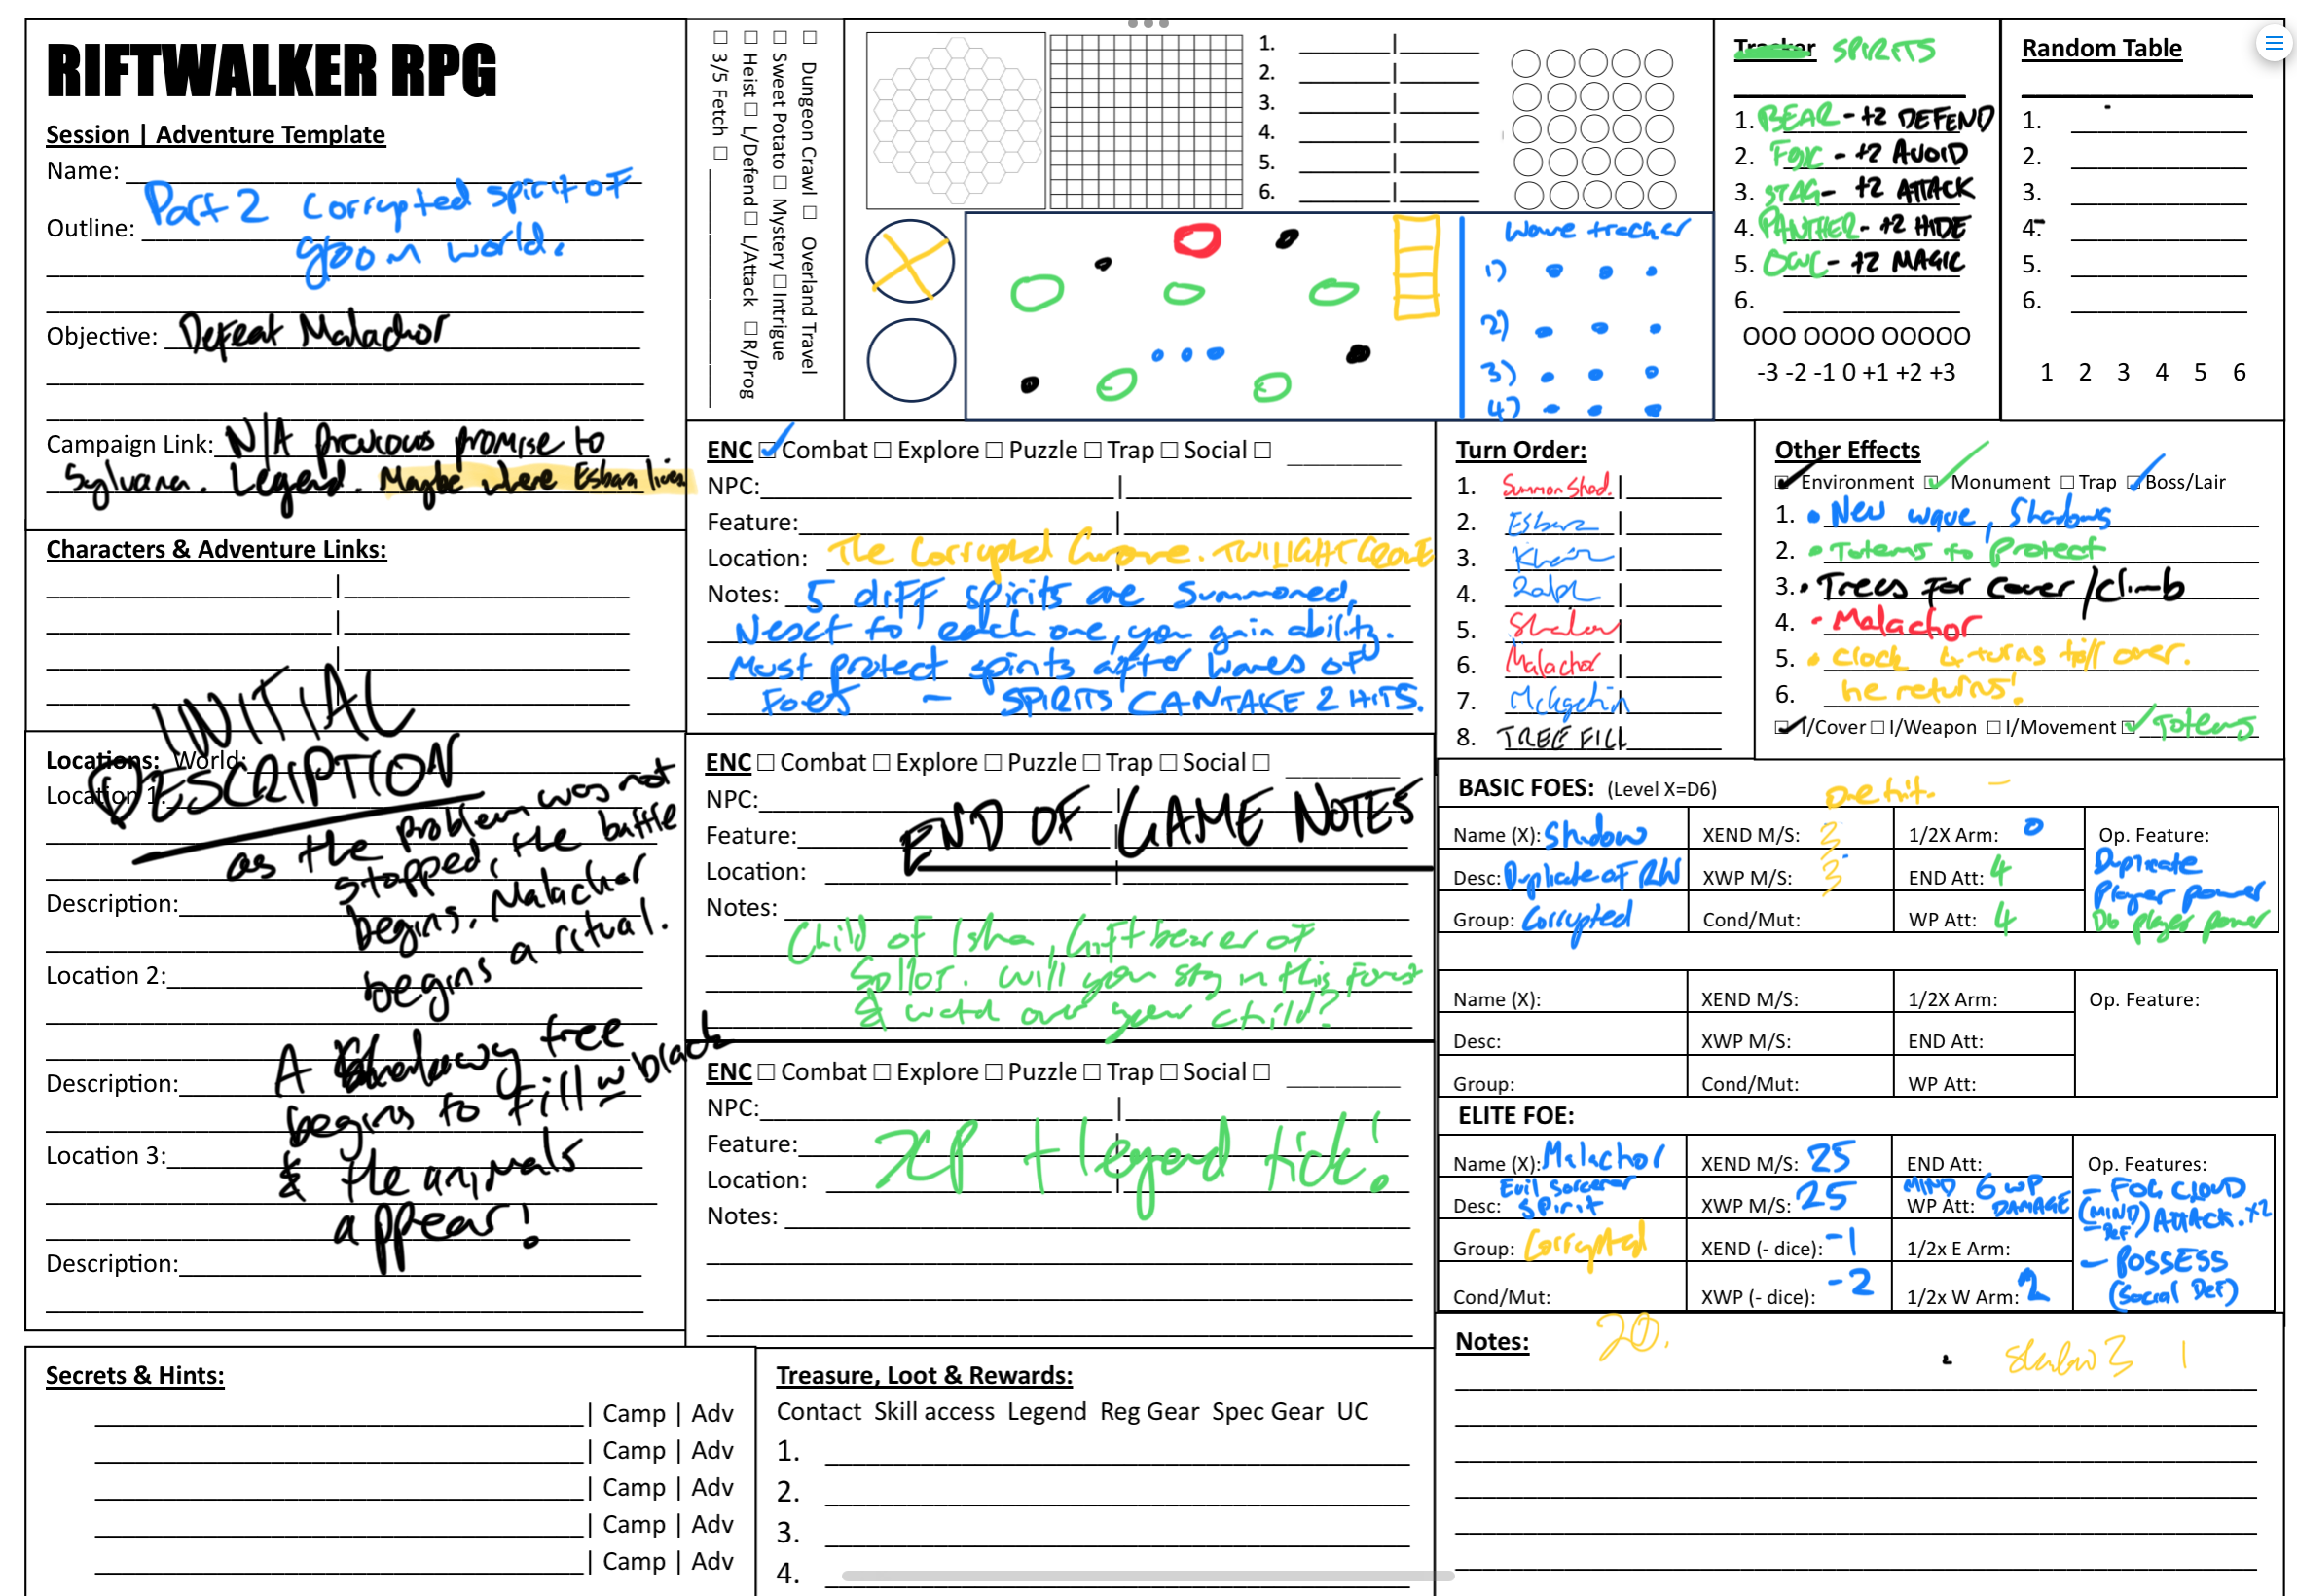 RIFTWALKER RPG
Session | Adventure Template
Name:
Part 2 Corrupted spirit of
Outline:
gloom world.
Objective: Defeat Malachor
Campaign Link: N/A previous promise to
Sylvana. Legend. Maybe where Esban lives
Characters & Adventure Links:
INITIAL
DESCRIPTION
Locations: World:
Location 1:
as the problem was not
stopped, the battle
Description:
begins. Malachor
begins a ritual.
Location 2:
A Shadowy tree
Description:
begins to fill w black
Location 3:
& the animals
appear!
Description:
Secrets & Hints:
| Camp | Adv
| Camp | Adv
| Camp | Adv
| Camp | Adv
| Camp | Adv
☐ Dungeon Crawl ☐ Overland Travel
☐ Sweet Potato ☐ Mystery ☐ Intrigue
☐ Heist ☐ L/Defend ☐ L/Attack ☐ R/Prog
☐ 3/5 Fetch ☐
1.
2.
3.
4.
5.
6.
Wave tracker
1)
2)
3)
4)
Tracker SPIRITS
1. BEAR - +2 DEFEND
2. FOX - +2 AVOID
3. STAG - +2 ATTACK
4. PANTHER - +2 HIDE
5. OWL - +2 MAGIC
6.
OOO OOOO OOOOO
-3 -2 -1 0 +1 +2 +3
Random Table
1.
2.
3.
4.
5.
6.
1 2 3 4 5 6
ENC ☐ Combat ☐ Explore ☐ Puzzle ☐ Trap ☐ Social ☐
NPC:
Feature:
Location: The Corrupted Grove. TWILIGHT GROVE
Notes: 5 diff spirits are summoned,
Next to each one, you gain ability.
Must protect spirits after waves of
Foes - SPIRITS CAN TAKE 2 HITS.
ENC ☐ Combat ☐ Explore ☐ Puzzle ☐ Trap ☐ Social ☐
NPC:
END OF GAME NOTES
Feature:
Location:
Notes:
Child of Isha, Giftbearer of
will you stay in this Forest
& watch over your child?
ENC ☐ Combat ☐ Explore ☐ Puzzle ☐ Trap ☐ Social ☐
NPC:
Feature:
XP + legend tick!
Location:
Notes:
Treasure, Loot & Rewards:
Contact Skill access Legend Reg Gear Spec Gear UC
1.
2.
3.
4.
Turn Order:
1. Summon Shad.
2. Esban
3.
4. Ralph
5. Shadow
6. Malachor
7.
8. TREE FILL
Other Effects
☐ Environment ☐ Monument ☐ Trap ☐ Boss/Lair
1. • New wave, Shadows
2. • Totems to Protect
3. • Trees for cover/climb
4. - Malachor
5. • Clock 4 turns till over.
6. he returns!
☐ I/Cover ☐ I/Weapon ☐ I/Movement ☐ Totems
BASIC FOES: (Level X=D6)
One hit -
Name (X): Shadow
XEND M/S: 3
1/2X Arm: 0
Op. Feature:
Duplicate
Player power
D6 player power
Desc: Duplicate of RW
XWP M/S: 3
END Att: 4
Group: Corrupted
Cond/Mut:
WP Att: 4
Name (X):
XEND M/S:
1/2X Arm:
Op. Feature:
Desc:
XWP M/S:
END Att:
Group:
Cond/Mut:
WP Att:
ELITE FOE:
Name (X): Malachor
XEND M/S: 25
END Att:
Op. Features:
- FOG CLOUD
(MIND) ATTACK. x2
DEF
- POSSESS
(Social Def)
Desc: Evil sorcerer
spirit
XWP M/S: 25
WP Att: MIND 6 WP
DAMAGE
Group: Corrupted
XEND (- dice): -1
1/2x E Arm:
Cond/Mut:
XWP (- dice): -2
1/2x W Arm: 2
Notes: 20.
Shadow 3 1